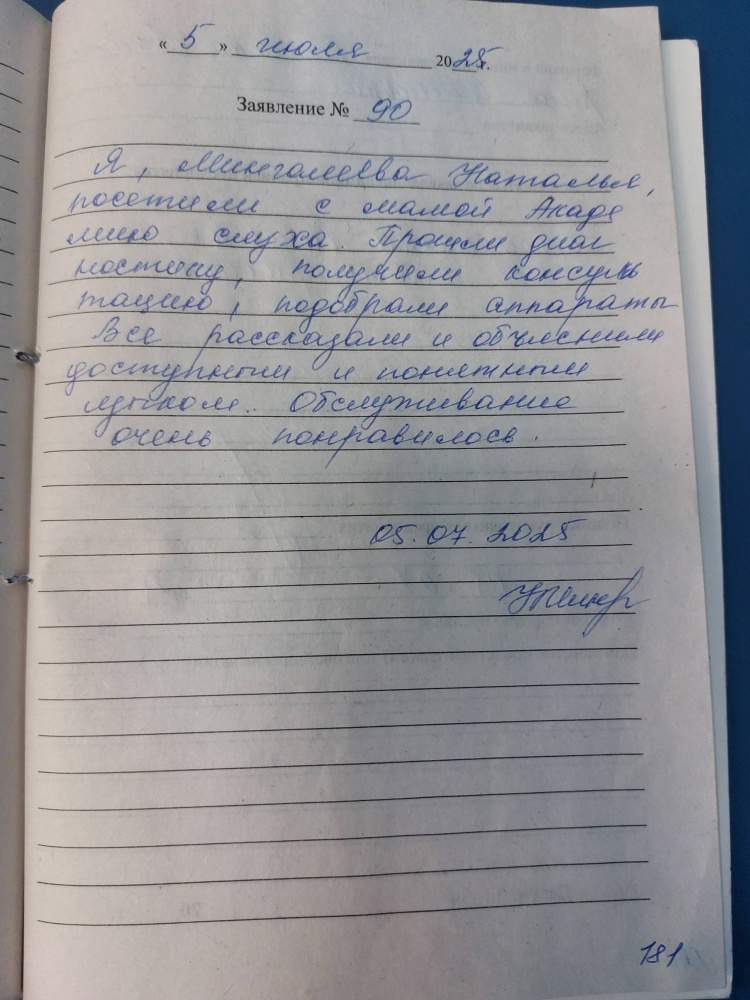 « 5 » июля 2025 г.
Заявление № 90
Я, Мингалеева Наталья,
посетили с мамой Акаде
мию слуха. Прошли диаг
ностику, получили консуль
тацию, подобрали аппараты
Все рассказали и объяснили
доступным и понятным
языком. Обслуживание
очень понравилось.
05.07.2025
181